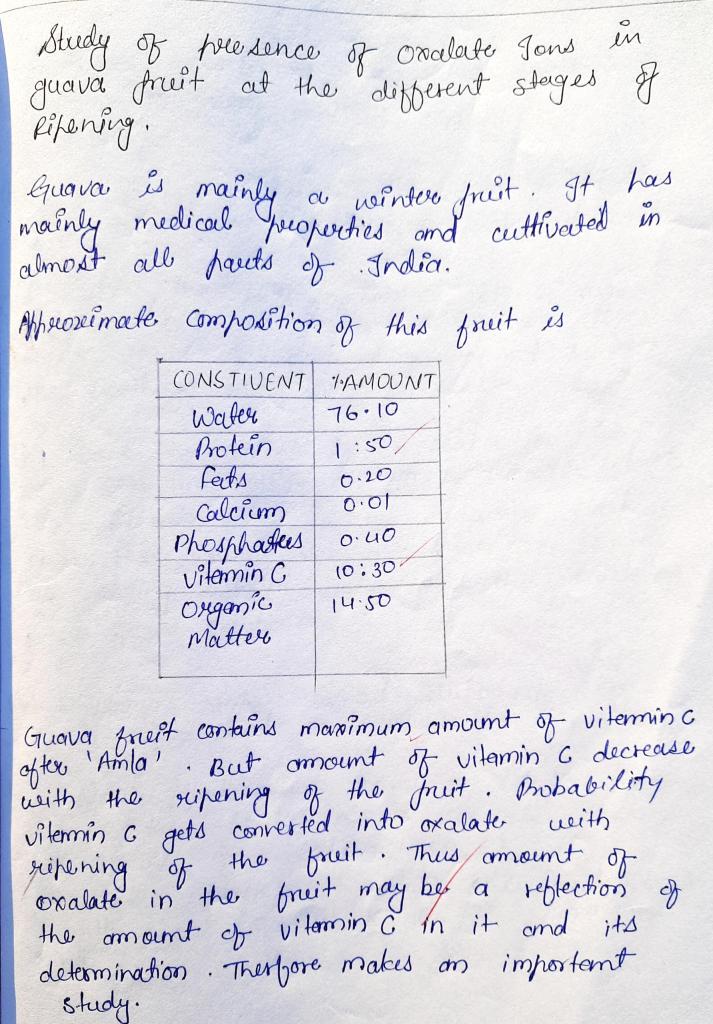 Study of presence of oxalate Ions in
guava fruit at the different stages of
Ripening.
Guava is mainly a winter fruit. It has
mainly medical properties and cultivated in
almost all parts of India.
Approximate composition of this fruit is
CONSTIUENT %AMOUNT
Water 76.10
Protein 1:50
Fats 0.20
Calcium 0.01
Phosphates 0.40
Vitamin C 10:30
Organic 14.50
Matter
Guava fruit contains maximum amount of vitamin c
after 'Amla'. But amount of vitamin C decrease
with the ripening of the fruit. Probability
vitamin C gets converted into oxalate with
ripening of the fruit. Thus amount of
oxalate in the fruit may be a reflection of
the amount of vitamin C in it and its
determination. Therfore makes an important
study.